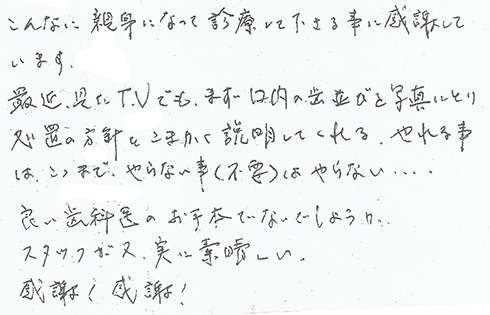 こんなに親身になって診療して下さる事に感謝して
います.
最近、見たT.Vでも、まず口内の歯並びを写真にとり
処置の方針をこまかく説明してくれる. やれる事
は、ここまで、やらない事(不要)はやらない....
良い歯科医のお手本でないでしょうか.
スタッフガス、実に素晴しい.
感謝! 感謝!